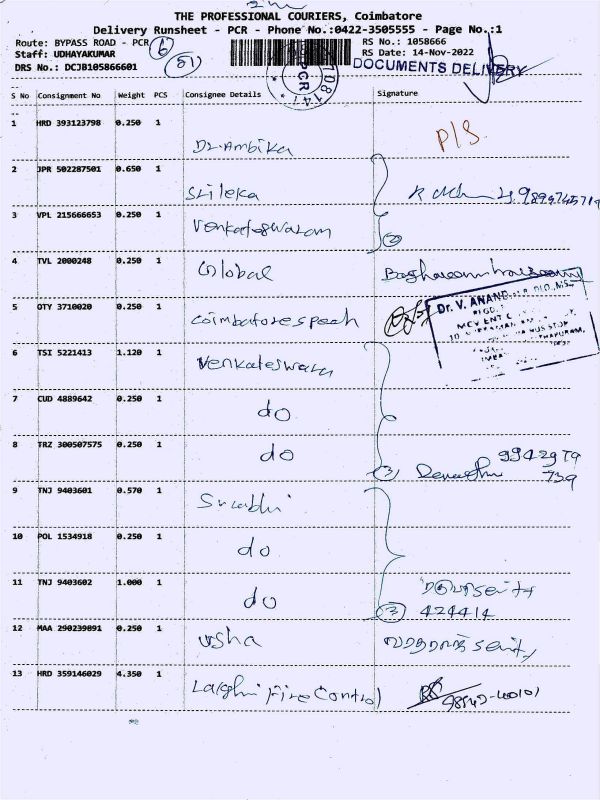 THE PROFESSIONAL COURIERS, Coimbatore
Delivery Runsheet - PCR - Phone No.:0422-3505555 - Page No.:1
Route: BYPASS ROAD - PCR 6 RS No.: 1058666
Staff: UDHAYAKUMAR 51 PCR RS Date: 14-Nov-2022
DRS No.: DCJB105866601 DOCUMENTS DELIVERY
S No Consignment No Weight PCS Consignee Details Signature
1 HRD 393123798 0.250 1 Dr. Ambika P/S.
2 JPR 502287501 0.650 1 Srileka
3 VPL 215666653 0.250 1 Venkateswaram 2
4 TVL 2000248 0.250 1 Global
5 OTY 3710020 0.250 1 Coimbatore speech Dr. V. ANAND
MCV ENT
BUS STOP
6 TSI 5221413 1.120 1 Venkateswara
7 CUD 4889642 0.250 1 do
8 TRZ 300507575 0.250 1 do 3 9942979
739
9 TNJ 9403601 0.570 1
10 POL 1534918 0.250 1 do
11 TNJ 9403602 1.000 1 do 3 424414
12 MAA 290239891 0.250 1 usha
13 HRD 359146029 4.350 1 Fire Control